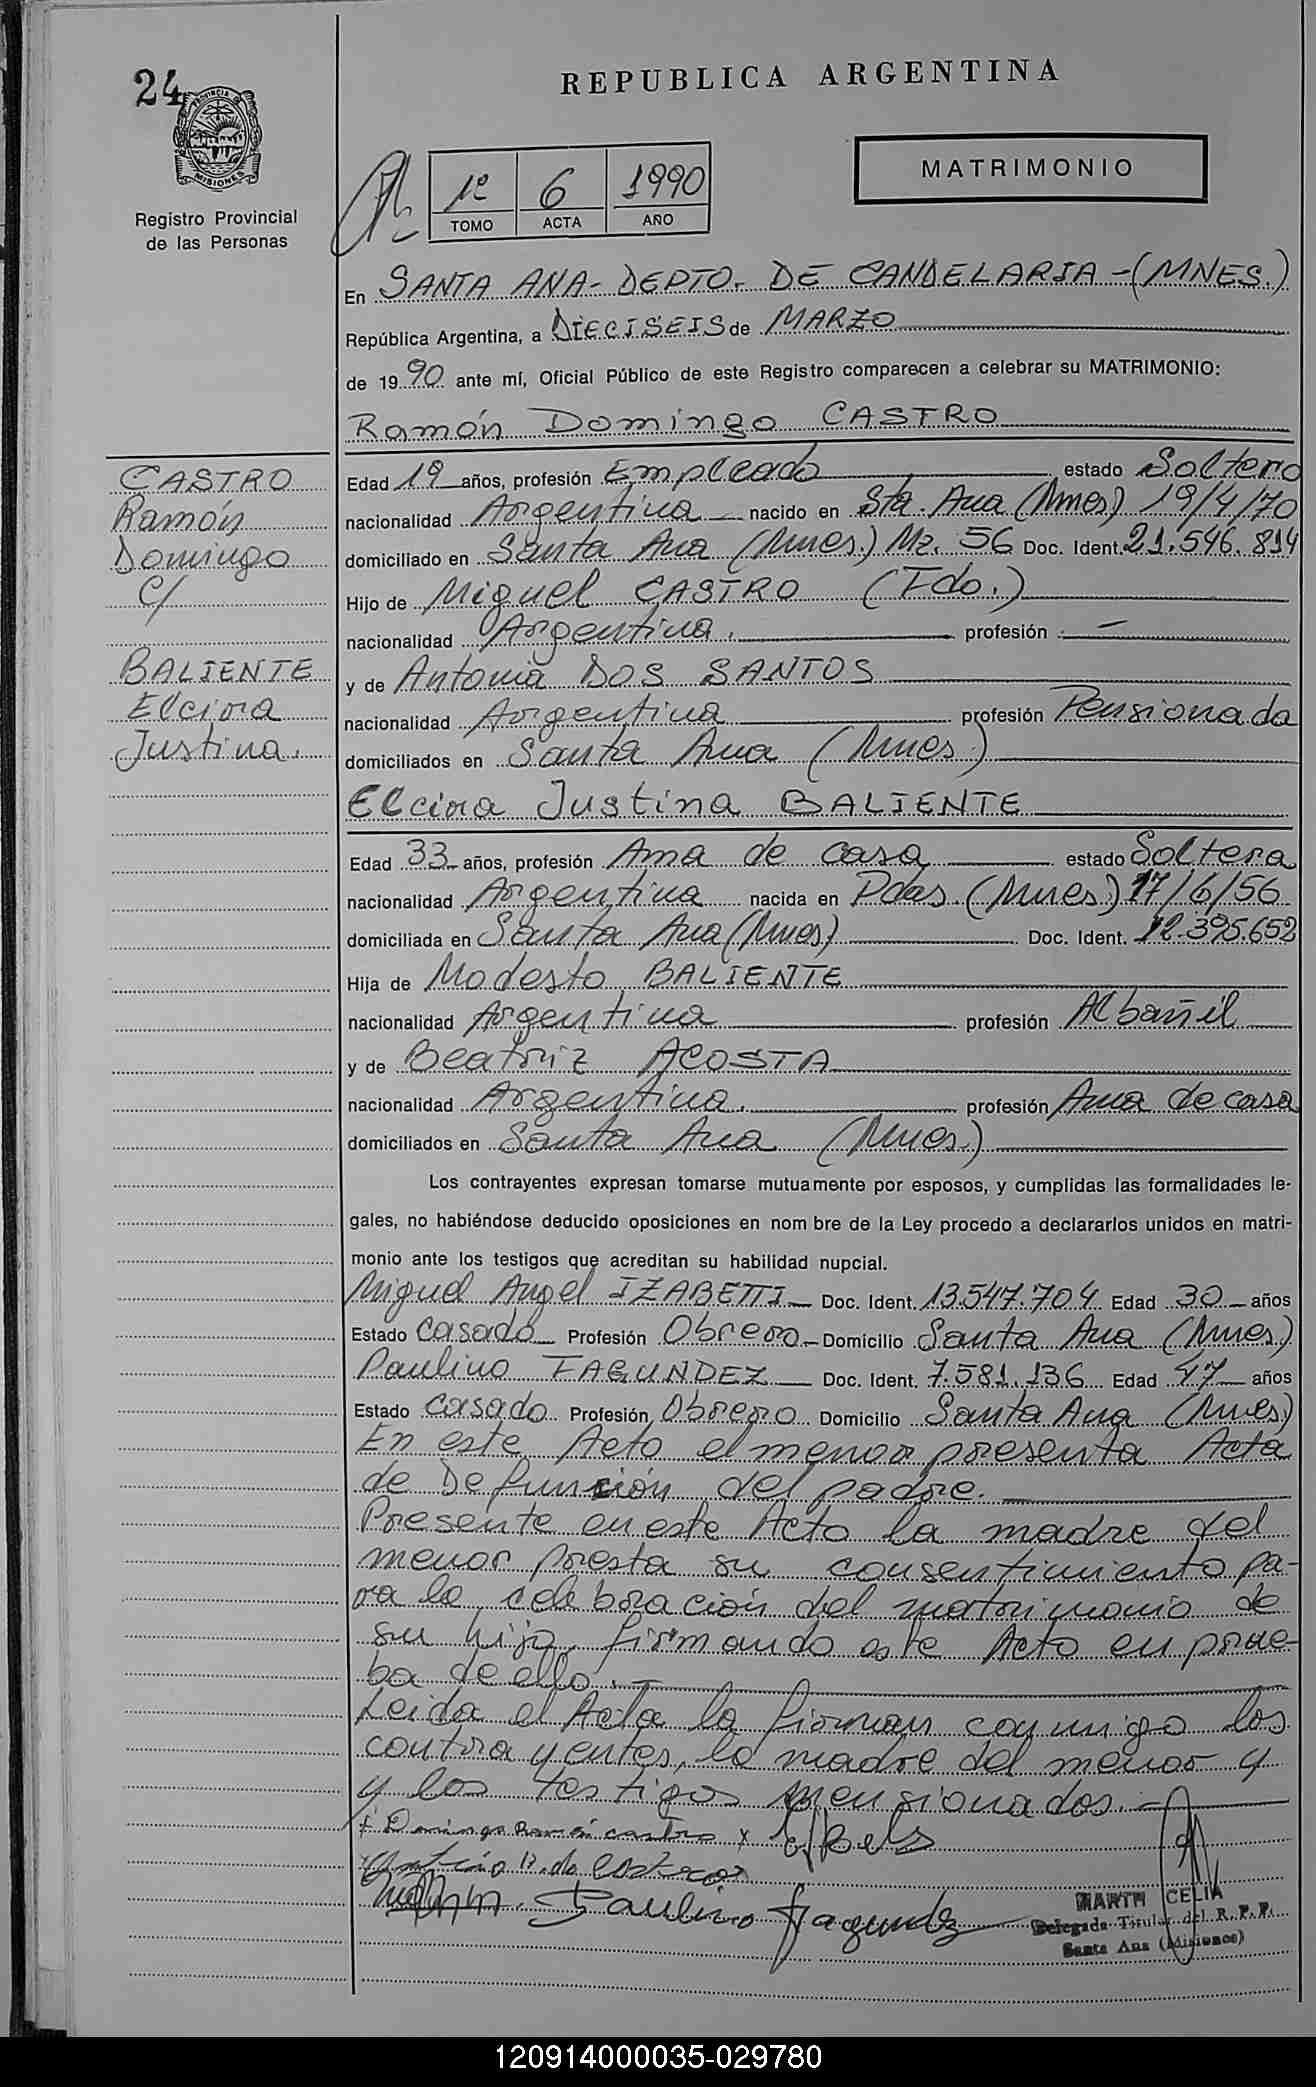 24
REPUBLICA ARGENTINA
PROVINCIA DE
MISIONES
Registro Provincial
de las Personas
1º 6 1990
TOMO ACTA AÑO
MATRIMONIO
En SANTA ANA-DEPTO. DE CANDELARIA-(MNES.)
República Argentina, a DIECISEIS de MARZO
de 1990 ante mí, Oficial Público de este Registro comparecen a celebrar su MATRIMONIO:
Ramón Domingo CASTRO
CASTRO
Ramón
Domingo
C/
BALIENTE
Elcira
Justina.
Edad 19 años, profesión Empleado estado Soltero
nacionalidad Argentina nacido en Sta. Ana (Mnes) 19/4/70
domiciliado en Santa Ana (Mnes.) Mz. 56 Doc. Ident. 21.546.814
Hijo de Miguel CASTRO (Fdo.)
nacionalidad Argentina. profesión -
y de Antonia DOS SANTOS
nacionalidad Argentina profesión Pensionada
domiciliados en Santa Ana (Mnes.)
Elcira Justina BALIENTE
Edad 33 años, profesión Ama de casa estado Soltera
nacionalidad Argentina nacida en Pdas. (Mnes.) 17/6/56
domiciliada en Santa Ana (Mnes) Doc. Ident. 12.395.652
Hija de Modesto BALIENTE
nacionalidad Argentina profesión Albañil
y de Beatriz ACOSTA
nacionalidad Argentina. profesión Ama de casa
domiciliados en Santa Ana (Mnes.)
Los contrayentes expresan tomarse mutuamente por esposos, y cumplidas las formalidades le-
gales, no habiéndose deducido oposiciones en nom bre de la Ley procedo a declararlos unidos en matri-
monio ante los testigos que acreditan su habilidad nupcial.
Miguel Angel IZABETTI Doc. Ident. 13.547.704 Edad 30 años
Estado Casado Profesión Obrero Domicilio Santa Ana (Mnes.)
Paulino FAGUNDEZ Doc. Ident. 7.581.136 Edad 47 años
Estado Casado Profesión Obrero Domicilio Santa Ana (Mnes)
En este Acto el menor presenta Acta
de Defunción del padre.
Presente en este Acto la madre del
menor presta su consentimiento pa-
ra la celebración del matrimonio de
su hijo, firmando este Acto en prue-
ba de ello.
Leida el Acta la firman conmigo los
contrayentes, la madre del menor y
y los testigos mensionados.
x Domingo Ramón castro x
Paulino fagundez
MARTA CELIA
Delegada Titular del R. P. P.
Santa Ana (Misiones)
120914000035-029780